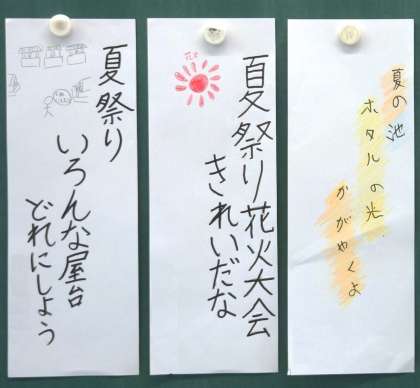 夏祭り
いろんな屋台
どれにしよう
夏祭り花火大会
きれいだな
夏の池
ホタルの光
かがやくよ